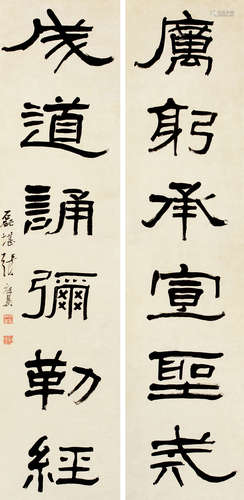 厲躬承宣聖戒
成道誦彌勒經
磊堪張祖翼